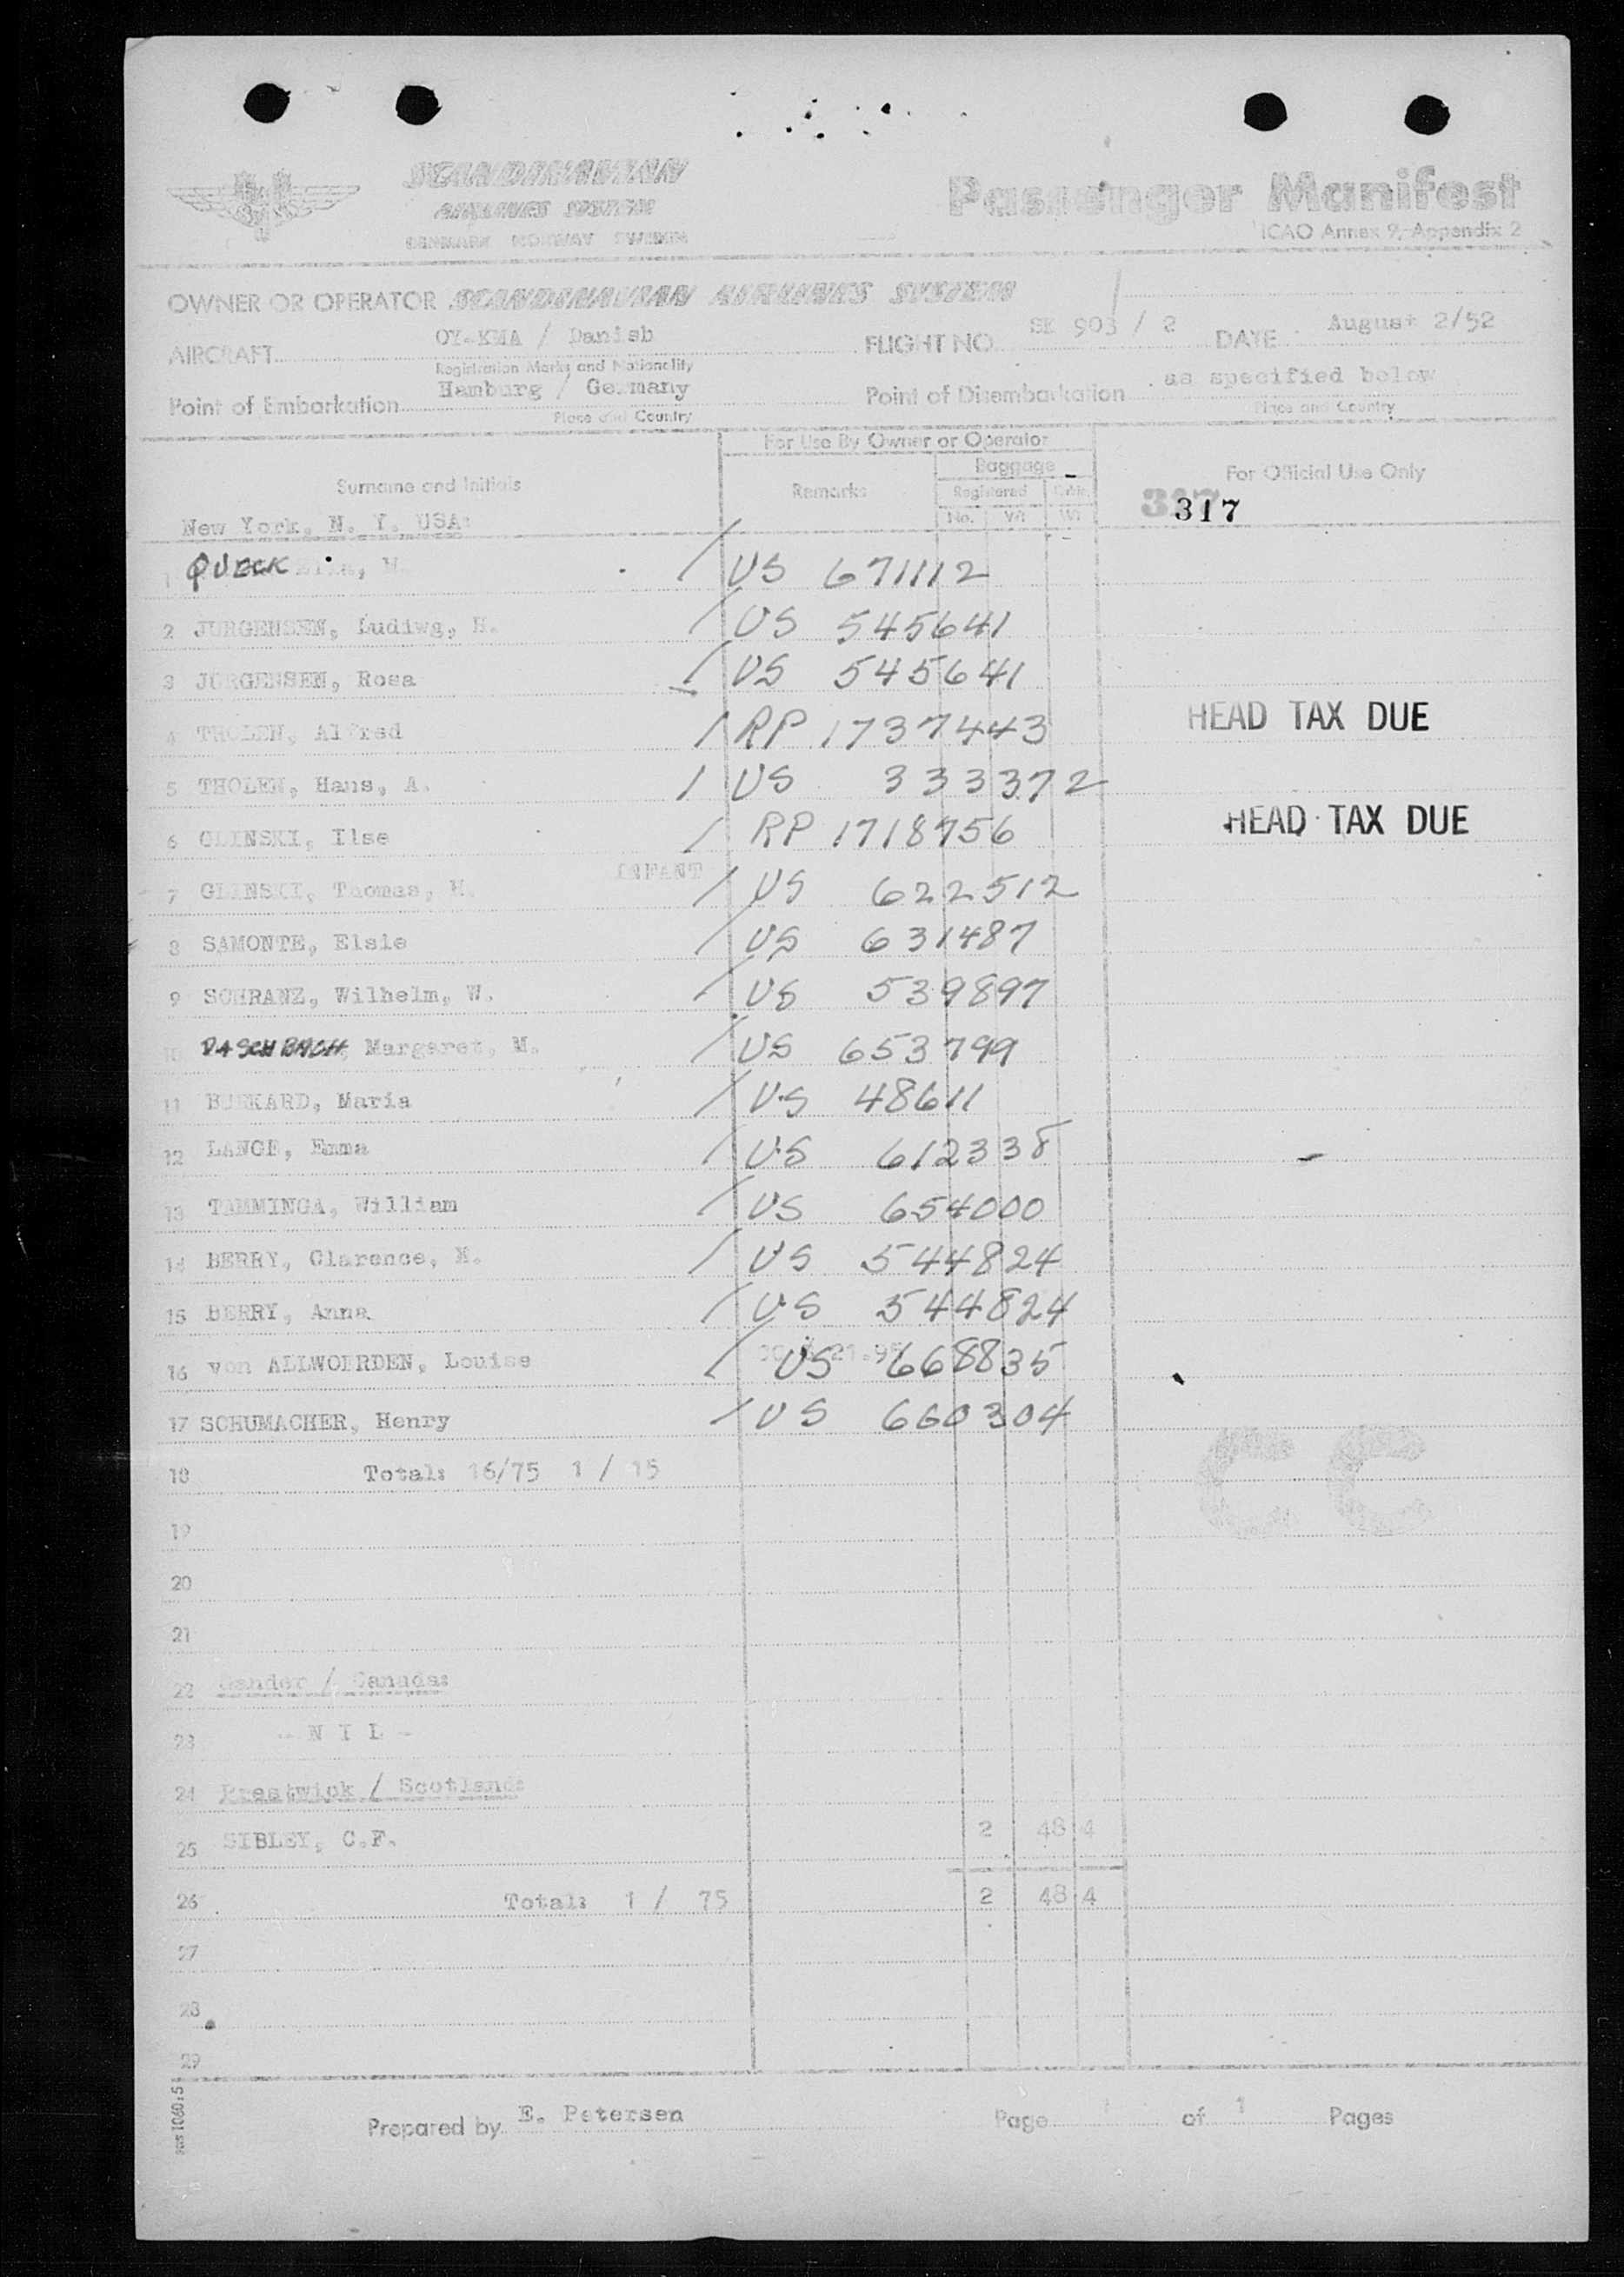 SCANDINAVIAN
AIRLINES SYSTEM
DENMARK NORWAY SWEDEN
Passenger Manifest
ICAO Annex 9, Appendix 2
OWNER OR OPERATOR SCANDINAVIAN AIRLINES SYSTEM
AIRCRAFT OY-KMA / Danish FLIGHT NO. SK 903 / 2 DATE August 2/52
Registration Marks and Nationality
Point of Embarkation Hamburg / Germany Point of Disembarkation as specified below
Place and Country Place and Country
For Use By Owner or Operator
Surname and Initials Remarks Baggage For Official Use Only
Registered Cabin
No. Wt Wt
317
317
New York, N. Y. USA:
1 QUECK US 671112
2 JURGENSEN, Ludiwg, H. US 545641
3 JURGENSEN, Rosa US 545641
4 THOLEN, Alfred RP 1737443 HEAD TAX DUE
5 THOLEN, Hans, A. US 333372
6 GLINSKI, Ilse RP 1718756 HEAD TAX DUE
7 GLINSKI, Thomas, H. INFANT US 622512
8 SAMONTE, Elsie US 631487
9 SCHRANZ, Wilhelm, W. US 539897
10 DASCHBACH, Margaret, M. US 653799
11 BURKARD, Maria US 48611
12 LANGE, Emma US 612338
13 TAMMINGA, William US 654000
14 BERRY, Clarence, M. US 544824
15 BERRY, Anna US 544824
16 von ALLWOERDEN, Louise US 668835
17 SCHUMACHER, Henry US 660304
CC
18 Total: 16/75 1 / 15
19
20
21
22 Gander / Canada:
23 - N I L -
24 Prestwick / Scotland:
25 SIBLEY, C.F. 2 48 4
26 Total: 1 / 75 2 48 4
27
28
29
sas 1060:5
Prepared by E. Petersen Page 1 of 1 Pages